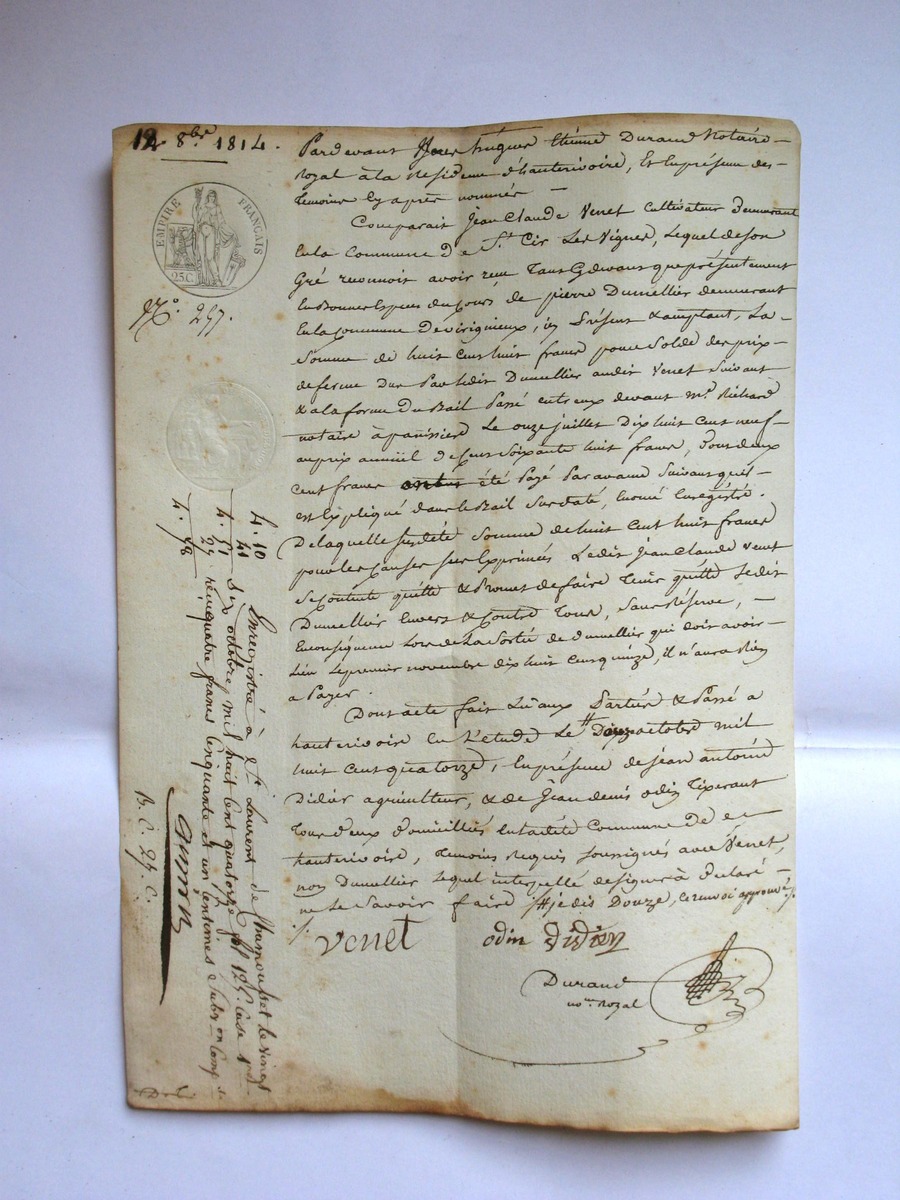 12 8bre 1814.
EMPIRE FRANÇAIS
25 C.
No. 257.
Pardevant Hugues Etienne Durand Notaire
royal à la Residence d'hauterivoire, Et En présence des
temoins Cy après nommés
Comparait Jean Claude Venet Cultivateur Demeurant
En la Commune de St. Cir Les Vignes, Lequel de Son
Gré reconnoit avoir reçu Tant Cydevant que présentement
En Bonnes Especes du Cours de pierre Dumellier demeurant
En la Commune de virignieux, icy Présent & acceptant, La
Somme de huit Cent huit francs pour Solde des prix
de ferme dus Par Ledit Dumellier audit Venet Suivant
& a la forme Du Bail Passé entreux devant Me. Richard
notaire à panissiere Le onze juillet Dix huit Cent neuf
au prix annuel de Cent Soixante huit francs, Dont deux
Cent francs été Payé Par avance Suivant qu'il
est Expliqué dans le Bail Sus daté, Enregistré.
De laquelle susdite Somme de huit Cent huit francs
pour les Causes sus Exprimées Ledit Jean Claude Venet
Se Contente quitte & Promet de faire Tenir quitte Ledit
Dumellier Envers & Contre Tous, Sans Réserve,
En conséquence Lors de La Sortie de dumellier qui doit avoir
Lieu Le premier novembre dix huit Cent quinze, il n'aura Rien
a Payer.
Dont acte fait Lu aux Parties & Passé a
hauterivoire En L'etude Le octobre mil
huit Cent quatorze, En présence de Jean antoine
Didier agriculteur, & de Jean denis odin Tixerant
Tous deux domiciliés En ladite Commune de
hauterivoire, Temoins Requis Soussignés avec Venet,
non Dumellier Lequel interpellé de signer à Déclaré
ne Le Savoir faire # je dis Douze, Ce renvoi approuvé
venet
odin didier
Durand
no.re Royal
4. 10
41
4. 51
27
4. 78
Enregistré à St. Laurent de Chamousset le vingt
Six octobre mil huit Cent quatorze fol 125 Case 1re
reçu quatre francs Cinquante et un Centimes Subv. en Comp.
B. C. 27 C.